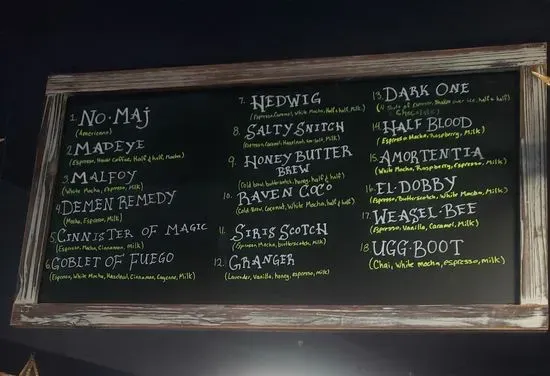 1. NO·MAJ
(Americano)
2. MADEYE
(Espresso, House Coffee, Half & half, Mocha)
3. MALFOY
(White Mocha, Espresso, Milk)
4. DEMEN REMEDY
(Mocha, Espresso, Milk)
5. CINNISTER OF MAGIC
(Espresso, Mocha, Cinnamon, Milk)
6. GOBLET OF FUEGO
(Espresso, White Mocha, Hazelnut, Cinnamon, Cayenne, Milk)
7. HEDWIG
(Espresso, Caramel, White Mocha, Half & half, Milk)
8. SALTY SNITCH
(Espresso, Caramel, Hazelnut, Sea Salt, Milk)
9. HONEY BUTTER
BREW
(Cold brew, butterscotch, honey, half & half)
10. RAVEN COCO
(Cold Brew, Coconut, White Mocha, half & half)
11. SIRIS SCOTCH
(Espresso, Mocha, butterscotch, milk)
12. GRANGER
(Lavender, Vanilla, honey, espresso, milk)
13. DARK ONE
(4 Shots of Espresso, Shaken over ice, half & half)
Chocolate
14. HALF BLOOD
(Espresso, Mocha, Raspberry, Milk)
15. AMORTENTIA
(White Mocha, Raspberry, Espresso, Milk)
16. EL·DOBBY
(Espresso, Butterscotch, White Mocha, Milk)
17. WEASEL-BEE
(Espresso, Vanilla, Caramel, Milk)
18. UGG·BOOT
(Chai, White mocha, espresso, milk)